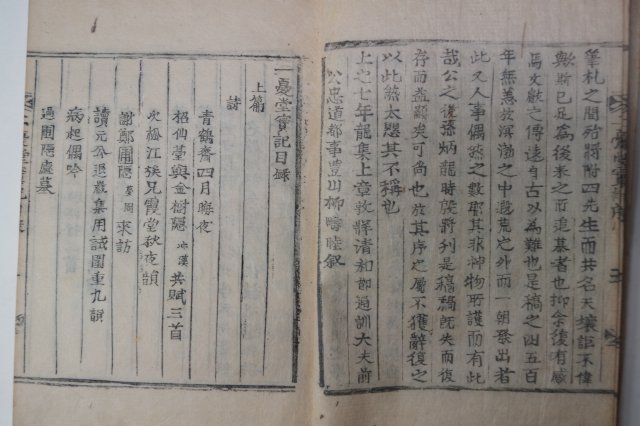 筆札之間殆將附四先生而共名天壤詎不偉
歟斯已足爲後來之所追慕者也抑余復有感
焉文獻之傳遠自古以爲難也是稿之四五百
年無恙於溟渤之中遐荒之外而一朝發出者
此又人事偶然之數耶其非神物所護而有此
哉公之後孫炳龍時殷將刋是稿稿旣失而復
存而益顯矣可尚已故於其序之屬不獲辭復之
以此然太嗟其不稱也
上之七年龍集上章敦牂淸和節通訓大夫前
公忠道都事豊山柳疇睦叙
二憂堂實記目錄
上篇
詩
靑鶴齋四月晦夜
招仙臺與金樹隱 冲漢 共賦三首
次松江族兄霞堂秋夜韻
謝鄭圃隱 夢周 來訪
讀元谷退歲集用試圍重九韻
病起偶吟
過圃隱處墓